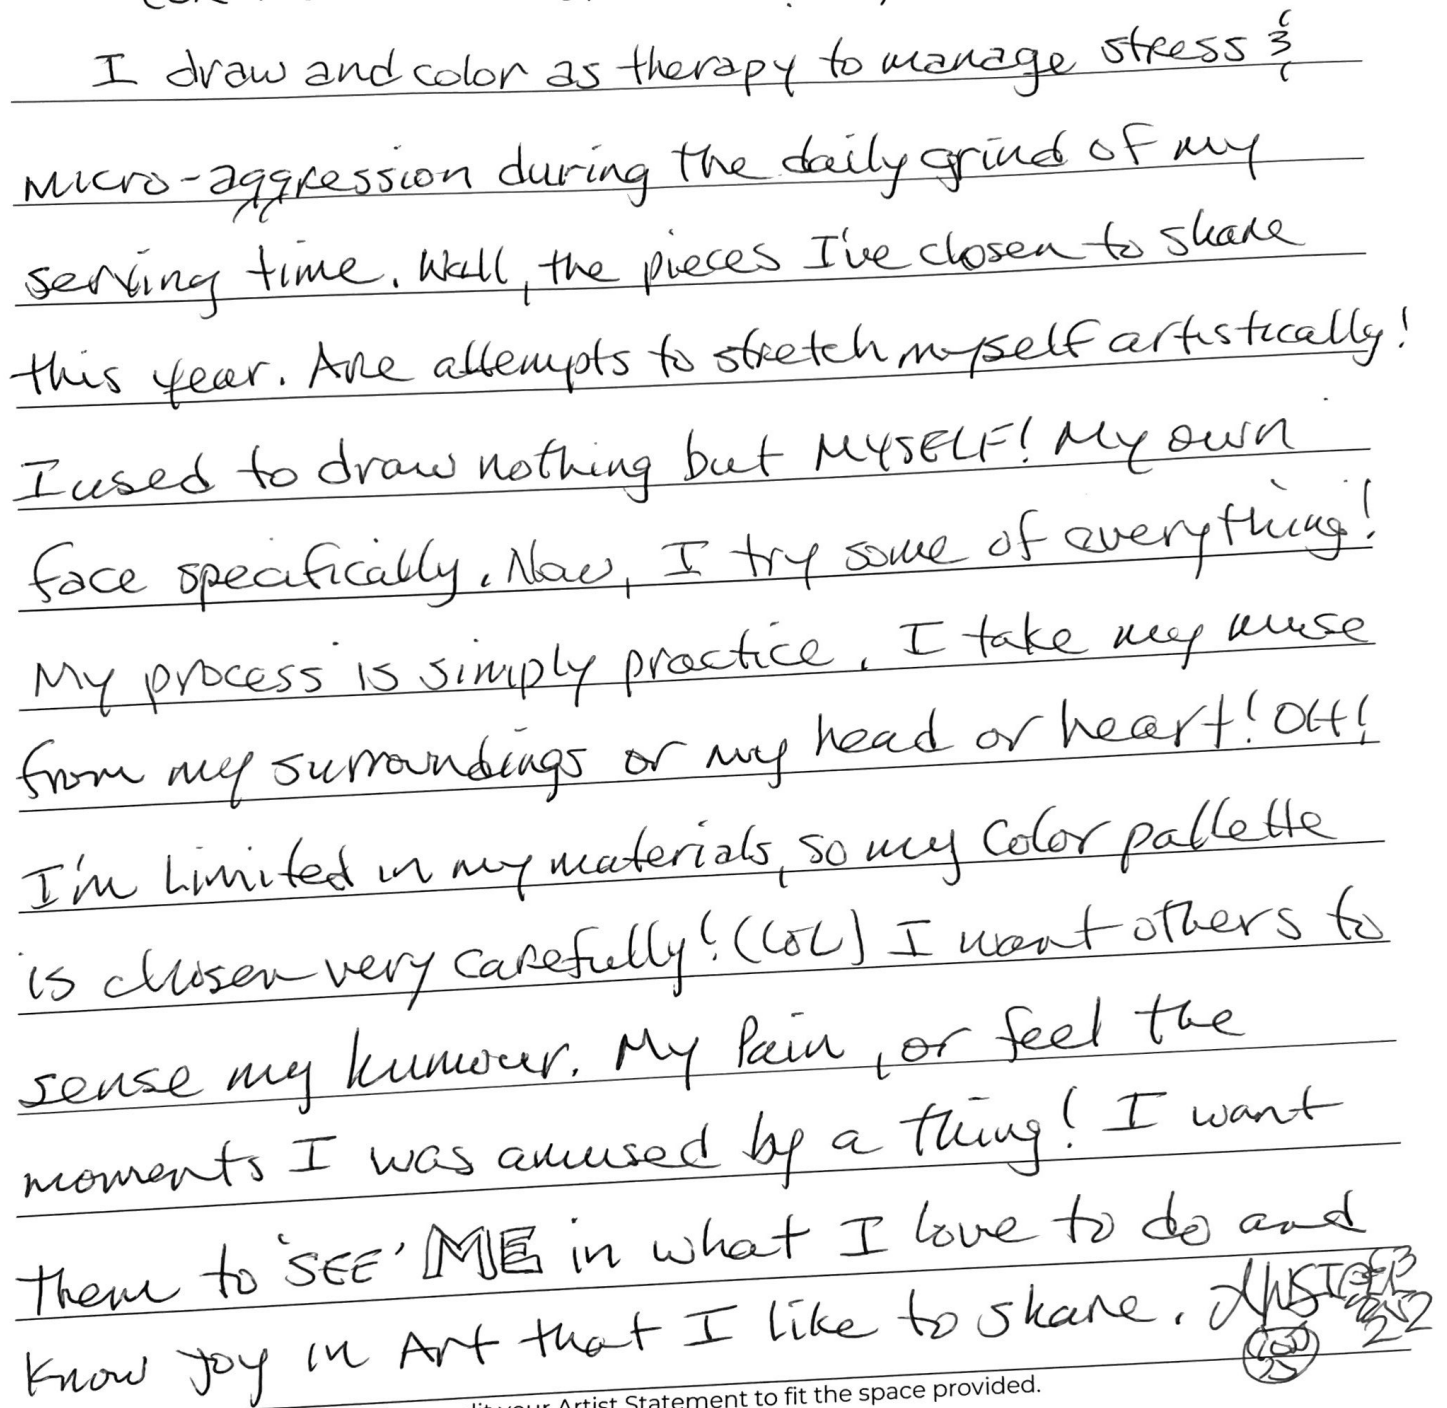 I draw and color as therapy to manage stress &
micro-aggression during the daily grind of my
serving time. Well, the pieces I've chosen to share
this year. Are attempts to stretch myself artistically!
I used to draw nothing but MYSELF! My own
face specifically. Now, I try some of everything!
My process is simply practice. I take my muse
from my surroundings or my head or heart! OH!
I'm Limited in my materials, so my Color pallette
is chosen very carefully! (LOL) I want others to
sense my humour. My Pain, or feel the
moments I was amused by a thing! I want
them to 'SEE' ME in what I love to do and
know joy in Art that I like to share.
your Artist Statement to fit the space provided.